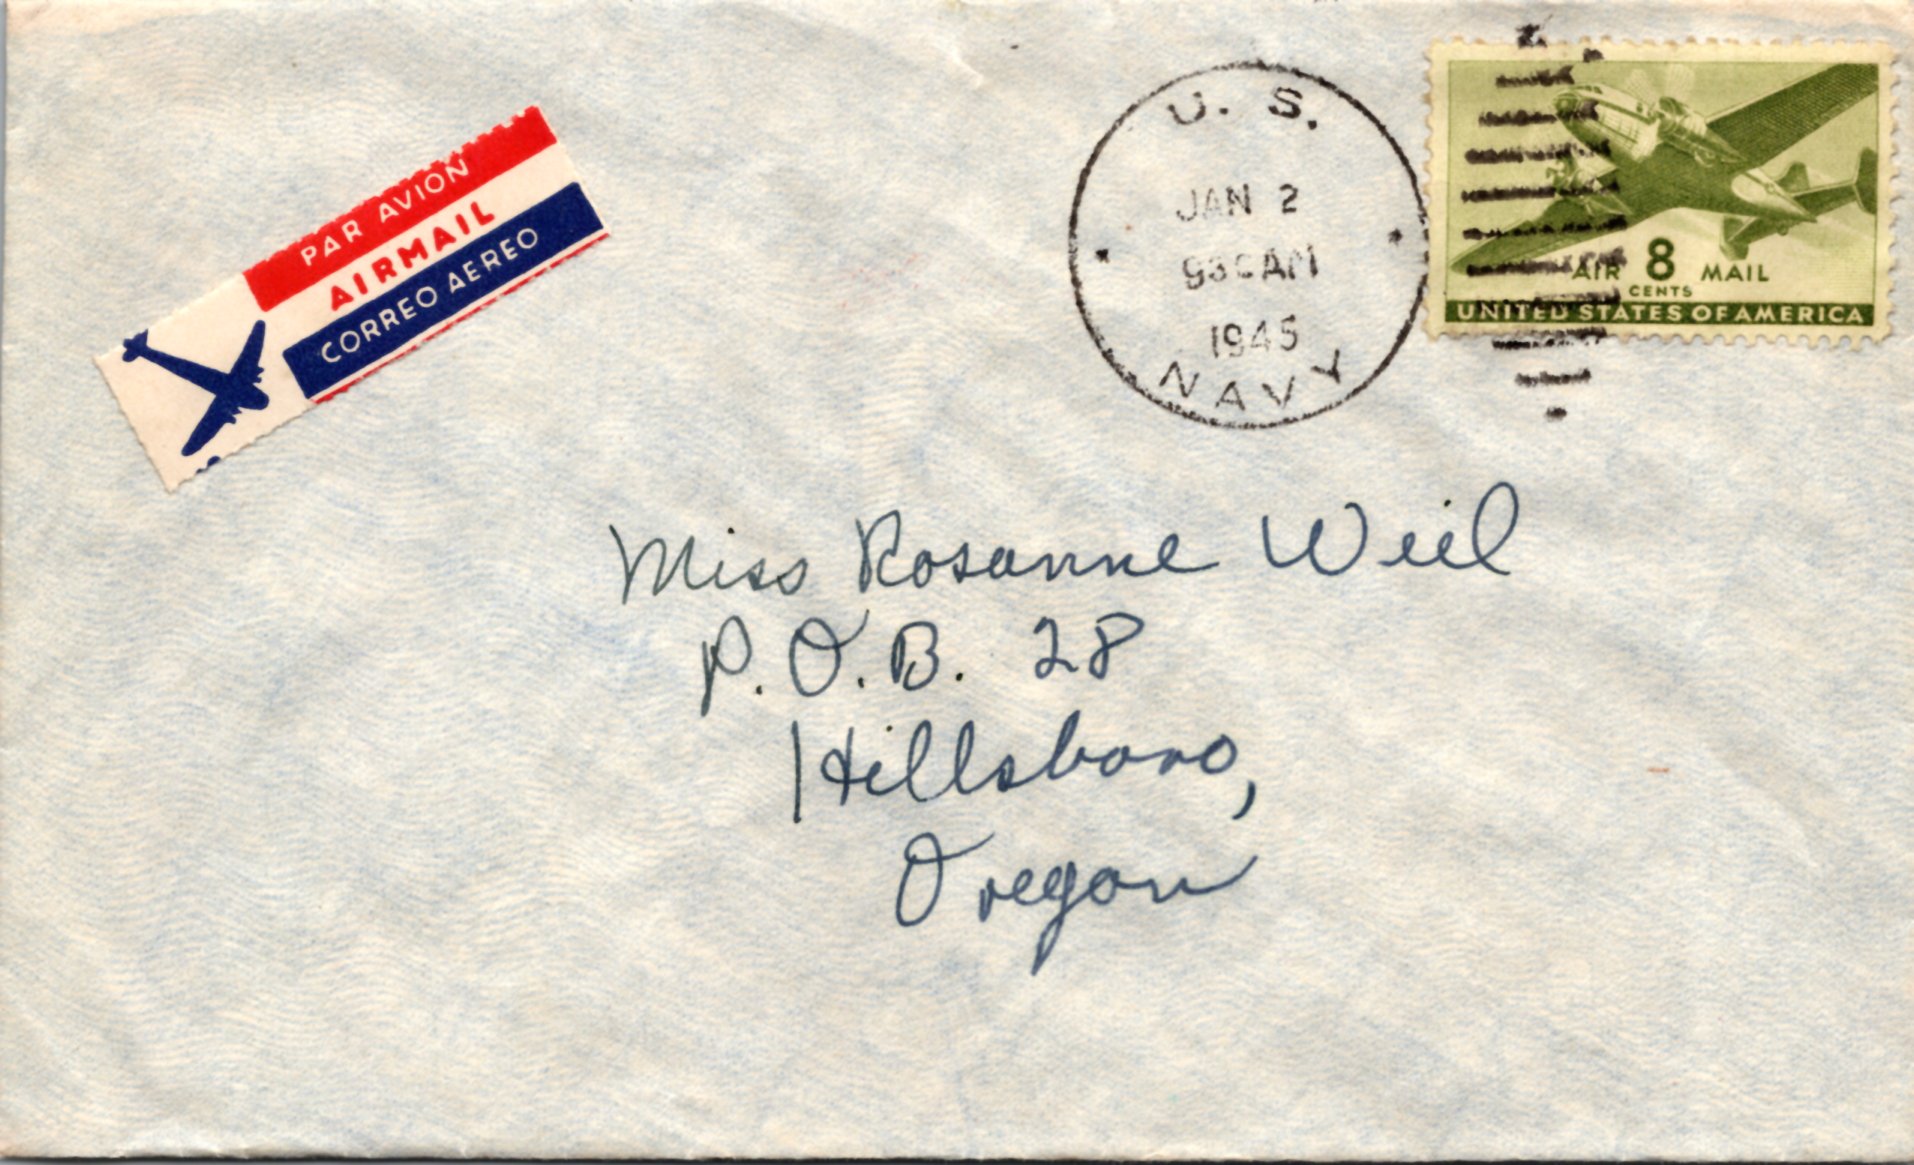 PAR AVION
AIRMAIL
CORREO AEREO
U. S.
JAN 2
930 AM
1945
NAVY
AIR 8 MAIL
CENTS
UNITED STATES OF AMERICA
Miss Rosanne Weil
P.O.B. 28
Hillsboro,
Oregon